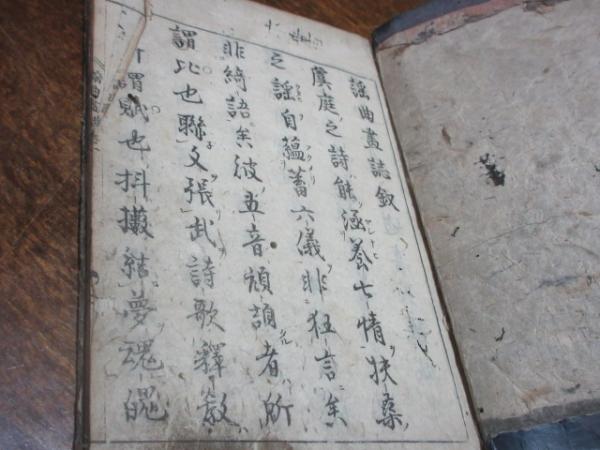 謡曲畫誌叙
虞庭之詩能涵養七情扶桑
之謡自蘊蓄六儀非狂言矣
非綺語矣彼五音頑頏者所
謂比也聯文張武詩歌釋教
謂賦也抖擻結夢魂魄